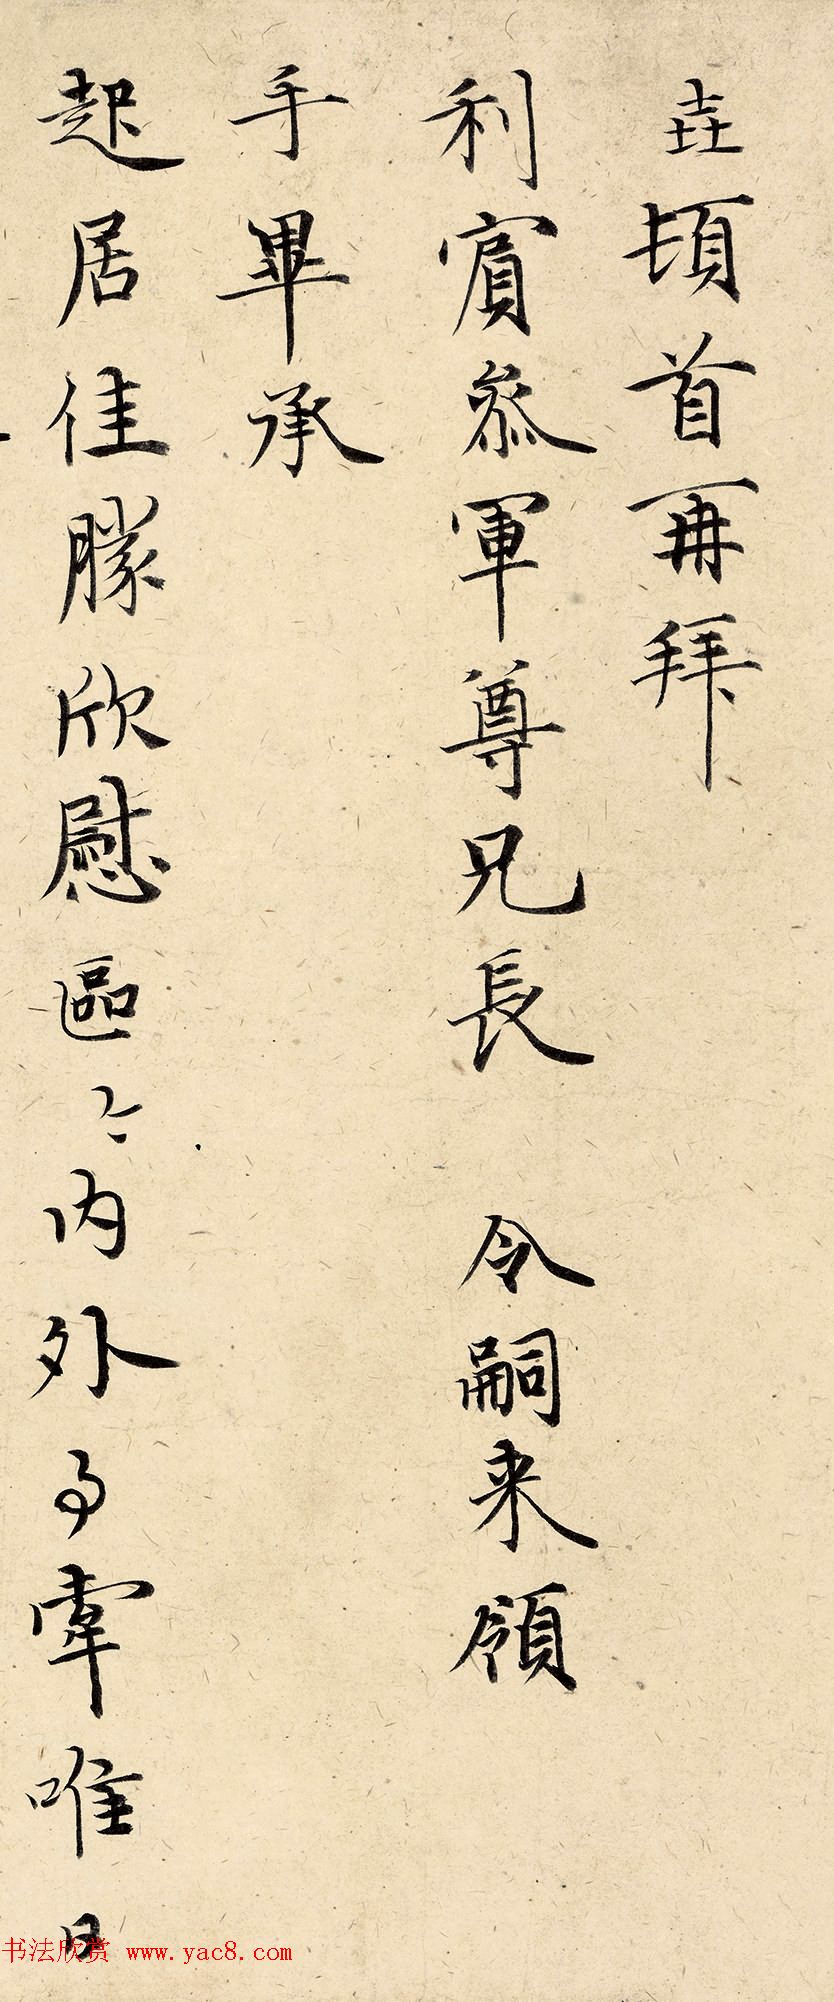 垚頓首再拜
利賓叅軍尊兄長 令嗣来領
手畢承
起居佳勝欣慰區〻內外事寧唯日
书法欣赏 www.yac8.com